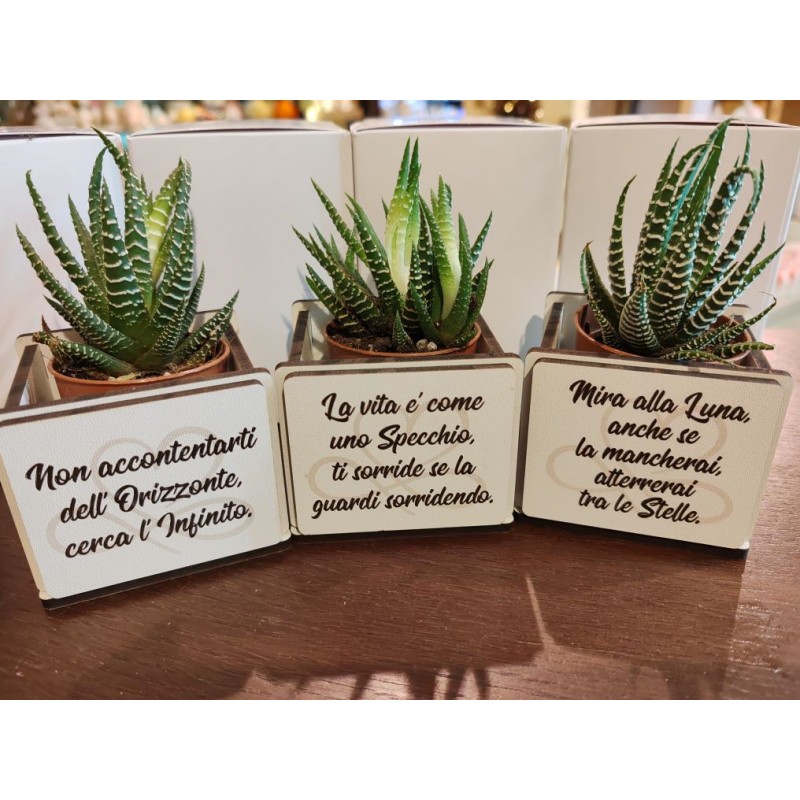 Non accontentarti
dell' Orizzonte,
cerca l' Infinito.
La vita e' come
uno Specchio,
ti sorride se la
guardi sorridendo.
Mira alla Luna,
anche se
la mancherai,
atterrerai
tra le Stelle.